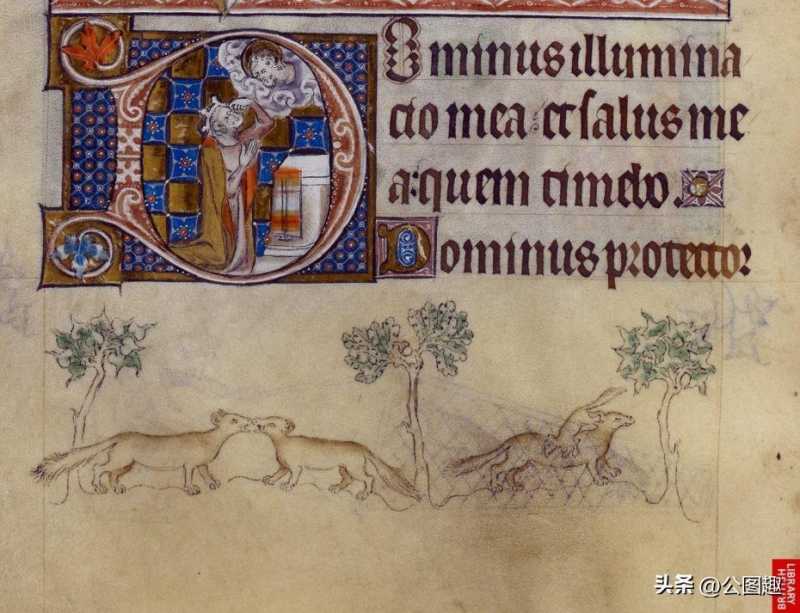 Dominus illumina
cio mea et salus me
a: quem timebo.
Dominus protector
LIBRARY
头条 @公图趣